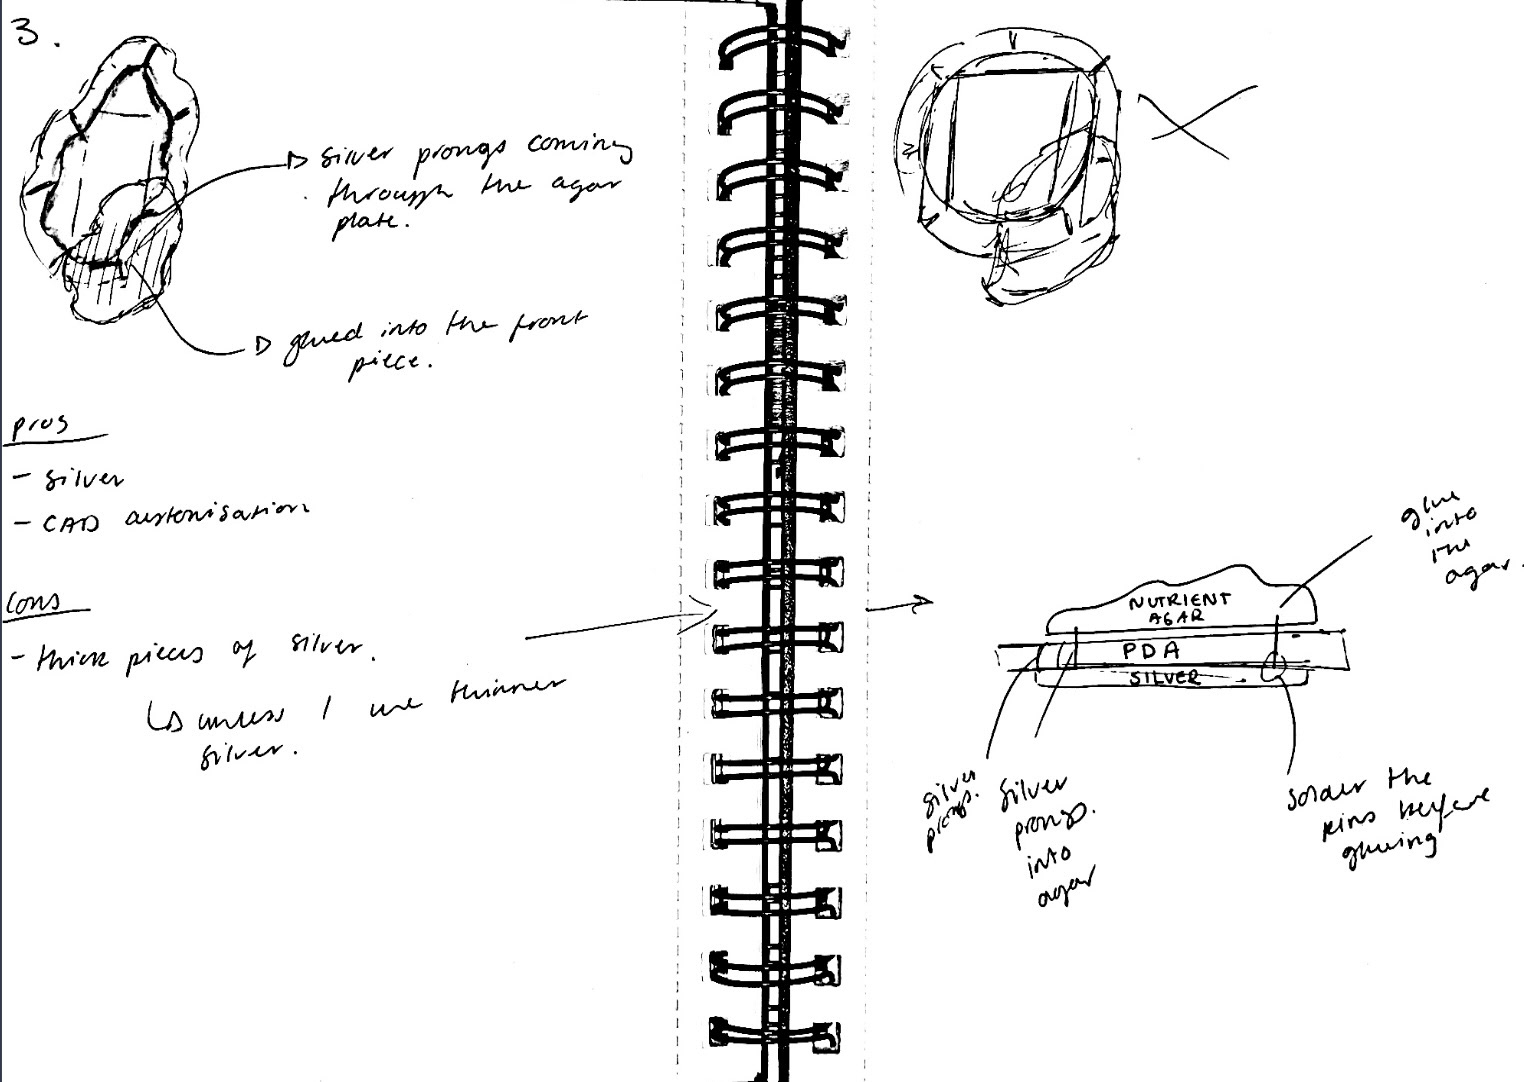 3.
silver prongs coming
through the agar
plate.
glued into the front
piece.
pros
- silver
- CAD customisation
cons
- thick pieces of silver.
unless I use thinner
silver.
glue
into
the
agar.
NUTRIENT
AGAR
PDA
SILVER
silver
prongs.
silver
prongs.
into
agar
solder the
pins before
glueing